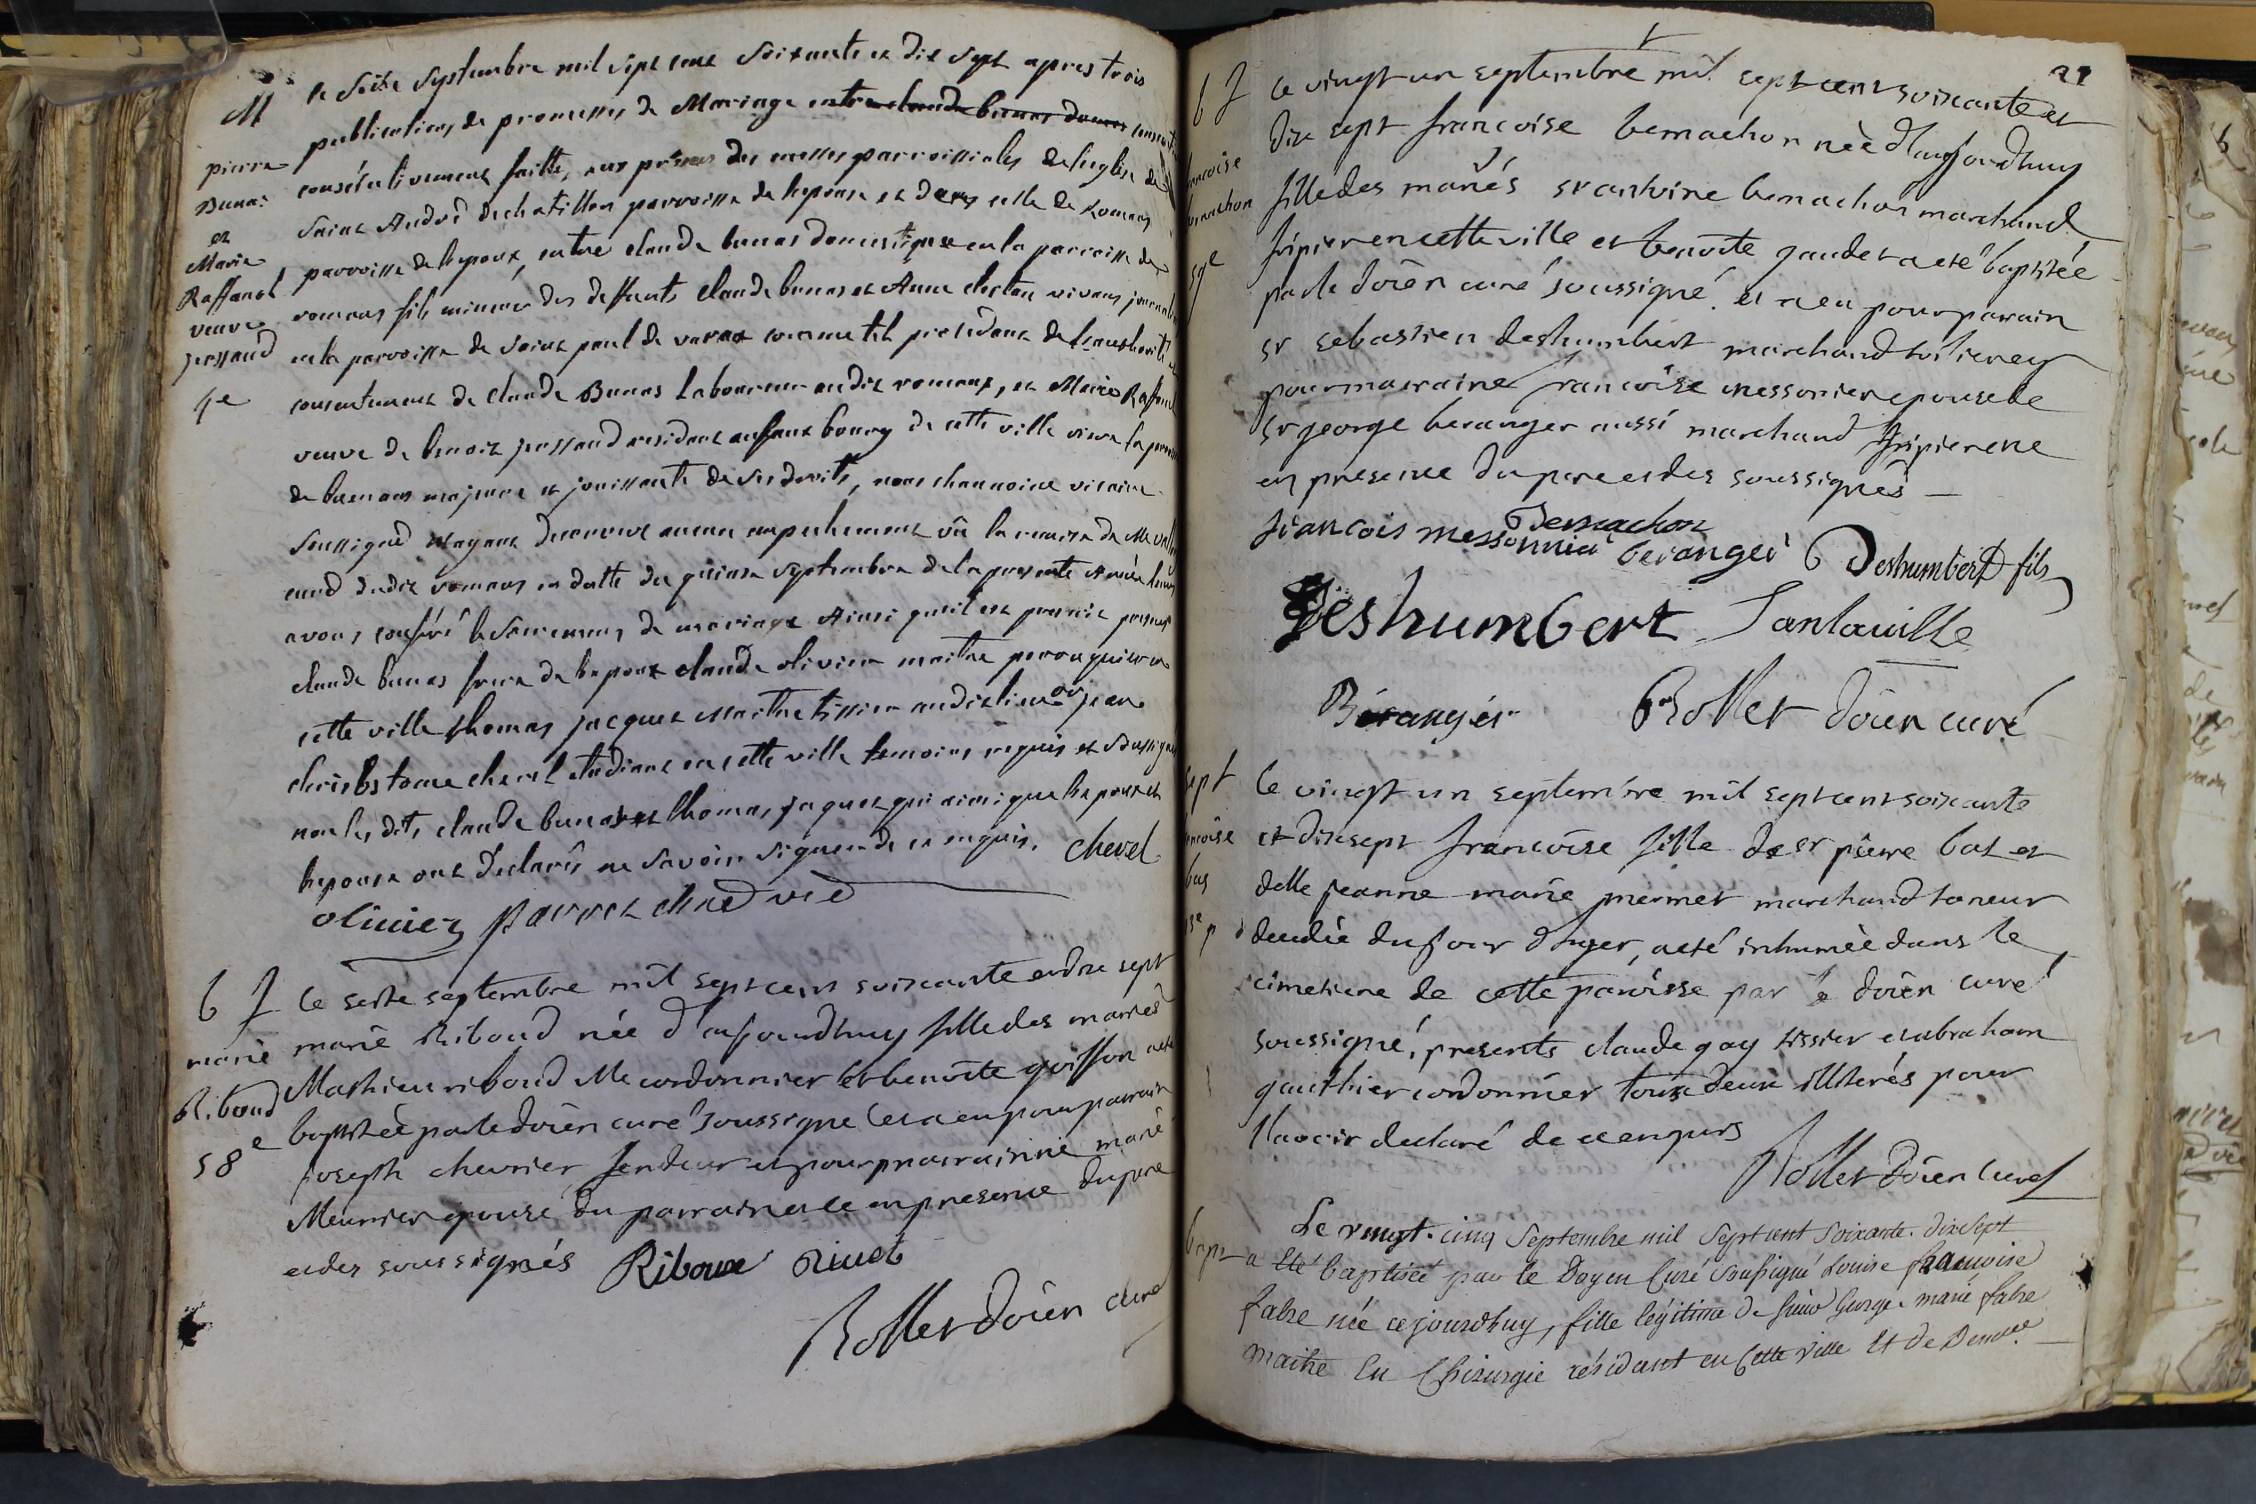 M
pierre
Bunas
et
Marie
Raffanel
veuve
jossand
4e
le seize septembre mil sept cent soixante et dix sept apres trois
publications de promesses de Mariage entre claude bunas domes
consécutivement faittes aux prônes des messes parroissiales de l'eglise de
Saint André de chatillon parroisse de lepouse et dans celle de Romans
parroisse de lepoux, entre claude bunas domestique en la parroisse de
romans fils mineur des deffunts claude bunas et Anne vivans
en la parroisse de saint paul de varax comme tel procedant de
consentement de claude Bunas laboureur audit romans, et Marie Raffanel
veuve de benoit jossand residant au faux bourg de cette ville
de buenans majeure et jouissante de ses droits, nous chanoine vicaire
soussigné n'ayant decouvert aucun empechement vû la remise de Mr
curé dudit romans en datte du quinze septembre de la presente Année
avons conféré le sacrement de mariage Ainsi qu'il est prescrit presents
claude bunas frere de lepoux claude olivier maitre perruquier en
cette ville thomas jacquet maitre tissier audit lieu et jean
christostome chevel etudiant en cette ville temoins requis et soussignés
non les dits claude bunas et thomas jaquet qui ainsi que lepoux et
lepouse ont declarés ne savoir signer de ce enquis. chevel
olivier
b f
marie
Riboud
58e
le seize septembre mil sept cent soixante et dix sept
marie Riboud née d'aujourdhuy fille des mariés
Mathieu riboud Me cordonnier et benoite goiffon a eté
baptisée par le doïen curé soussigné et a eu pour parrain
joseph chevrier fendeur et pour marraine marie
Meunier epouse du parrain et ce en presence du pere
et des soussignés Riboud Rivet
Rollet doïen curé
21
b f
francoise
bernachon
59e
le vingt un septembre mil sept cent soixante et
dix sept francoise bernachon née d'aujourdhuy
fille des mariés sr antoine bernachon marchand
fripier en cette ville et benoite gaudet a eté baptisée
par le doïen curé soussigné et a eu pour parain
sr sebastien deshumbert marchand toilier et
pour maraine francoise messonier epouse de
sr george beranger aussi marchand fripier et ce
en presence du pere et des soussignés
Bernachon
francois messonnier beranger Deshumbert fils
Deshumbert Santaville
Béranger Rollet doïen curé
sept
francoise
bas
le vingt un septembre mil sept cent soixante
et dix sept francoise fille de sr pierre bas et
delle jeanne marie mermet marchand taneur
decedée du jour d'hyer, a eté inhumée dans le
cimetiere de cette paroisse par le doïen curé
soussigné, presents claude gay tissier et abraham
gauthier cordonnier tous deux illiterés pour
l'avoir declaré de ce enquis
Rollet Doïen curé
bapt
Le vingt-cinq septembre mil sept cent soixante-dix sept
a été baptisée par le Doyen Curé soussigné Louise françoise
fabre née ce jourdhuy, fille légitime de sieur George marie fabre
maitre en Chirurgie résidant en Cette ville Et de Demelle